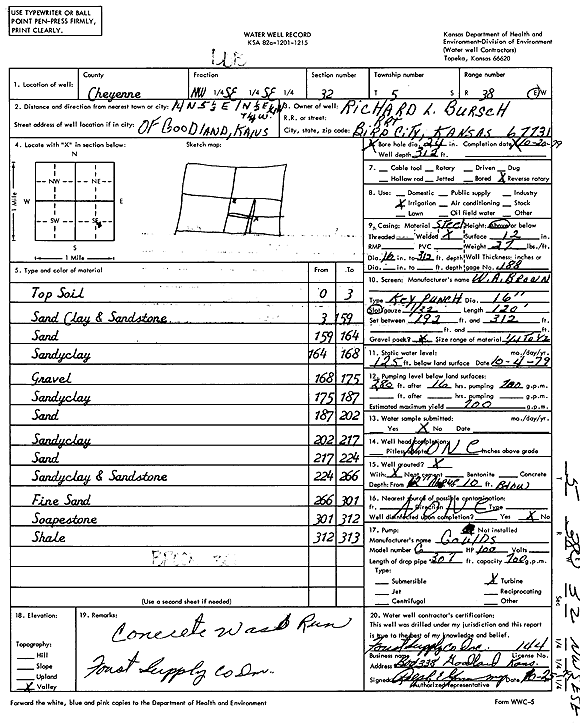 USE TYPEWRITER OR BALL
POINT PEN-PRESS FIRMLY,
PRINT CLEARLY.
WATER WELL RECORD
KSA 82a-1201-1215
Kansas Department of Health and
Environment-Division of Environment
(Water well Contractors)
Topeka, Kansas 66620
1. Location of well:
County
Cheyenne
Fraction
NW 1/4 SE 1/4 SE 1/4
Section number
32
Township number
T 5 S
Range number
R 38 E W
2. Distance and direction from nearest town or city:
Street address of well location if in city: OF GOODLAND, KANS
3. Owner of well: RICHARD L. BURSCH
R.R. or street:
City, state, zip code: BIRD CITY, KANSAS 67731
4. Locate with "X" in section below:
Sketch map:
N
NW NE
W E
SW SE
S
1 Mile
1 Mile
X Bore hole dia. 24 in. Completion date 10-20-79
Well depth 312 ft.
7. Cable tool Rotary Driven Dug
Hollow rod Jetted Bored X Reverse rotary
8. Use: Domestic Public supply Industry
X Irrigation Air conditioning Stock
Lawn Oil field water Other
9. Casing: Material Steel Height: Above or below
Threaded Welded X Surface 12 in.
RMP PVC Weight 37 lbs./ft.
Dia. 16 in. to 312 ft. depth Wall Thickness: inches or
Dia. in. to ft. depth gage No. 188
10. Screen: Manufacturer's name W.A. Brown
Type Key Punch Dia. 16"
Slot/gauze 1/32 Length 120'
Set between 192 ft. and 312 ft.
ft. and ft.
Gravel pack? X Size range of material
11. Static water level: mo./day/yr.
125 ft. below land surface Date 10-4-79
12. Pumping level below land surfaces:
280 ft. after 16 hrs. pumping 700 g.p.m.
ft. after hrs. pumping g.p.m.
Estimated maximum yield 700 g.p.m.
13. Water sample submitted: mo./day/yr.
Yes X No Date
14. Well head completion: NONE
Pitless adapter Inches above grade
15. Well grouted? X
With: X Neat cement Bentonite Concrete
Depth: From 10 ft. Below
16. Nearest source of possible contamination:
ft. Direction NONE Type
Well disinfected upon completion? Yes X No
17. Pump: Not installed
Manufacturer's name Goulds
Model number HP 100 Volts
Length of drop pipe 301 ft. capacity 700 g.p.m.
Type:
Submersible X Turbine
Jet Reciprocating
Centrifugal Other
5. Type and color of material From To
Top Soil 0 3
Sand Clay & Sandstone 3 159
Sand 159 164
Sandyclay 164 168
Gravel 168 175
Sandyclay 175 187
Sand 187 202
Sandyclay 202 217
Sand 217 224
Sandyclay & Sandstone 224 266
Fine Sand 266 301
Soapestone 301 312
Shale 312 313
(Use a second sheet if needed)
18. Elevation:
Topography:
Hill
Slope
Upland
X Valley
19. Remarks:
Concrete Wash Run
Foust Supply Co Inc.
20. Water well contractor's certification:
This well was drilled under my jurisdiction and this report
is true to the best of my knowledge and belief.
Foust Supply Co Inc. 144
Business name License No.
Address Box 338 Goodland Kans.
Signed Date 10-25
Authorized representative
Forward the white, blue and pink copies to the Department of Health and Environment
Form WWC-5